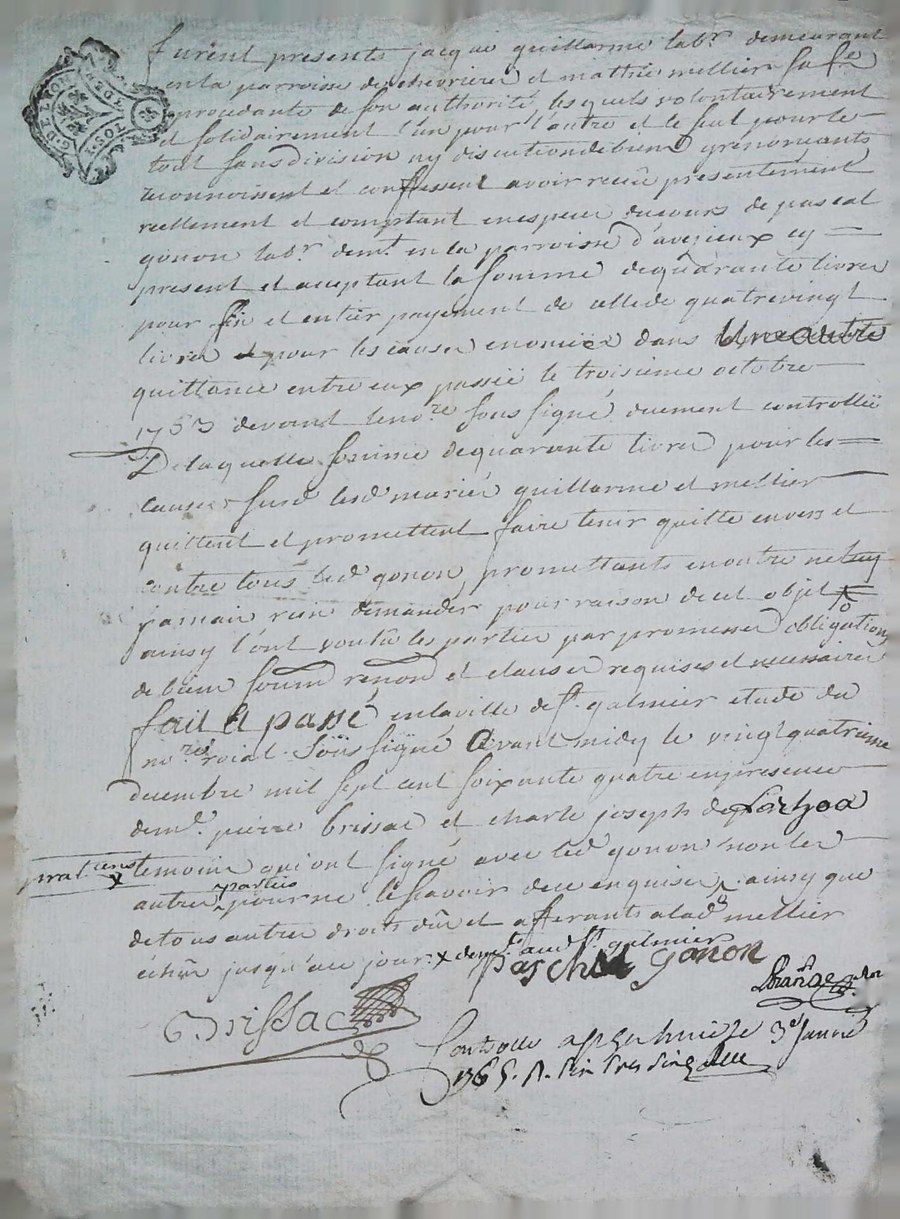 furent presents jacque guillarme lab.r demeurant
en la parroisse de chevriere et mathie mellier sa f.e
procedante de son authorité, lesquels volontairement
et solidairement l'un pour l'autre et le seul pour le
tout sans division ny discution de biens y renonçants
reconnoissent et confessent avoir receu presentement
reellement et comptant en espece du cours de pascal
gonon lab.r dem.t en la parroisse d'avezieux cy
present et acceptant la somme de quarante livres
pour fin et entier payement de celle de quatrevingt
livres et pour les causes enoncées dans une autre
quittance entre eux passée le troisieme octobre
1763 devant le no.re soussigné duement controllée
De laquelle somme de quarante livres pour les
causes susd. lesd. mariés guillarme et mellier
quittent et promettent faire tenir quitte envers et
contre tous led. gonon, promettants en outre ne luy
jamais rien demander pour raison de cet objet
ainsy l'ont voulu les parties par promesses obligations
de biens soum. renon. et clauses requises et necessaires
fait et passé en la ville de S.t galmier etude du
no.re roial soussigné avant midy le vingt quatrieme
decembre mil sept cent soixante quatre en presence
de m.e pierre brissac et charle joseph de
praticiens x temoins qui ont signé avec led. gonon non les
autres parties pour ne le scavoir de ce enquises, ainsy que
de tous autres droits dûs et afferants a lad. mellier
échûs jusqu'au jour. x dem.ts aud. S.t galmier
paschal gonon
Brissac
Controllé a S.t galmier le 3.e janvier
1765. R.